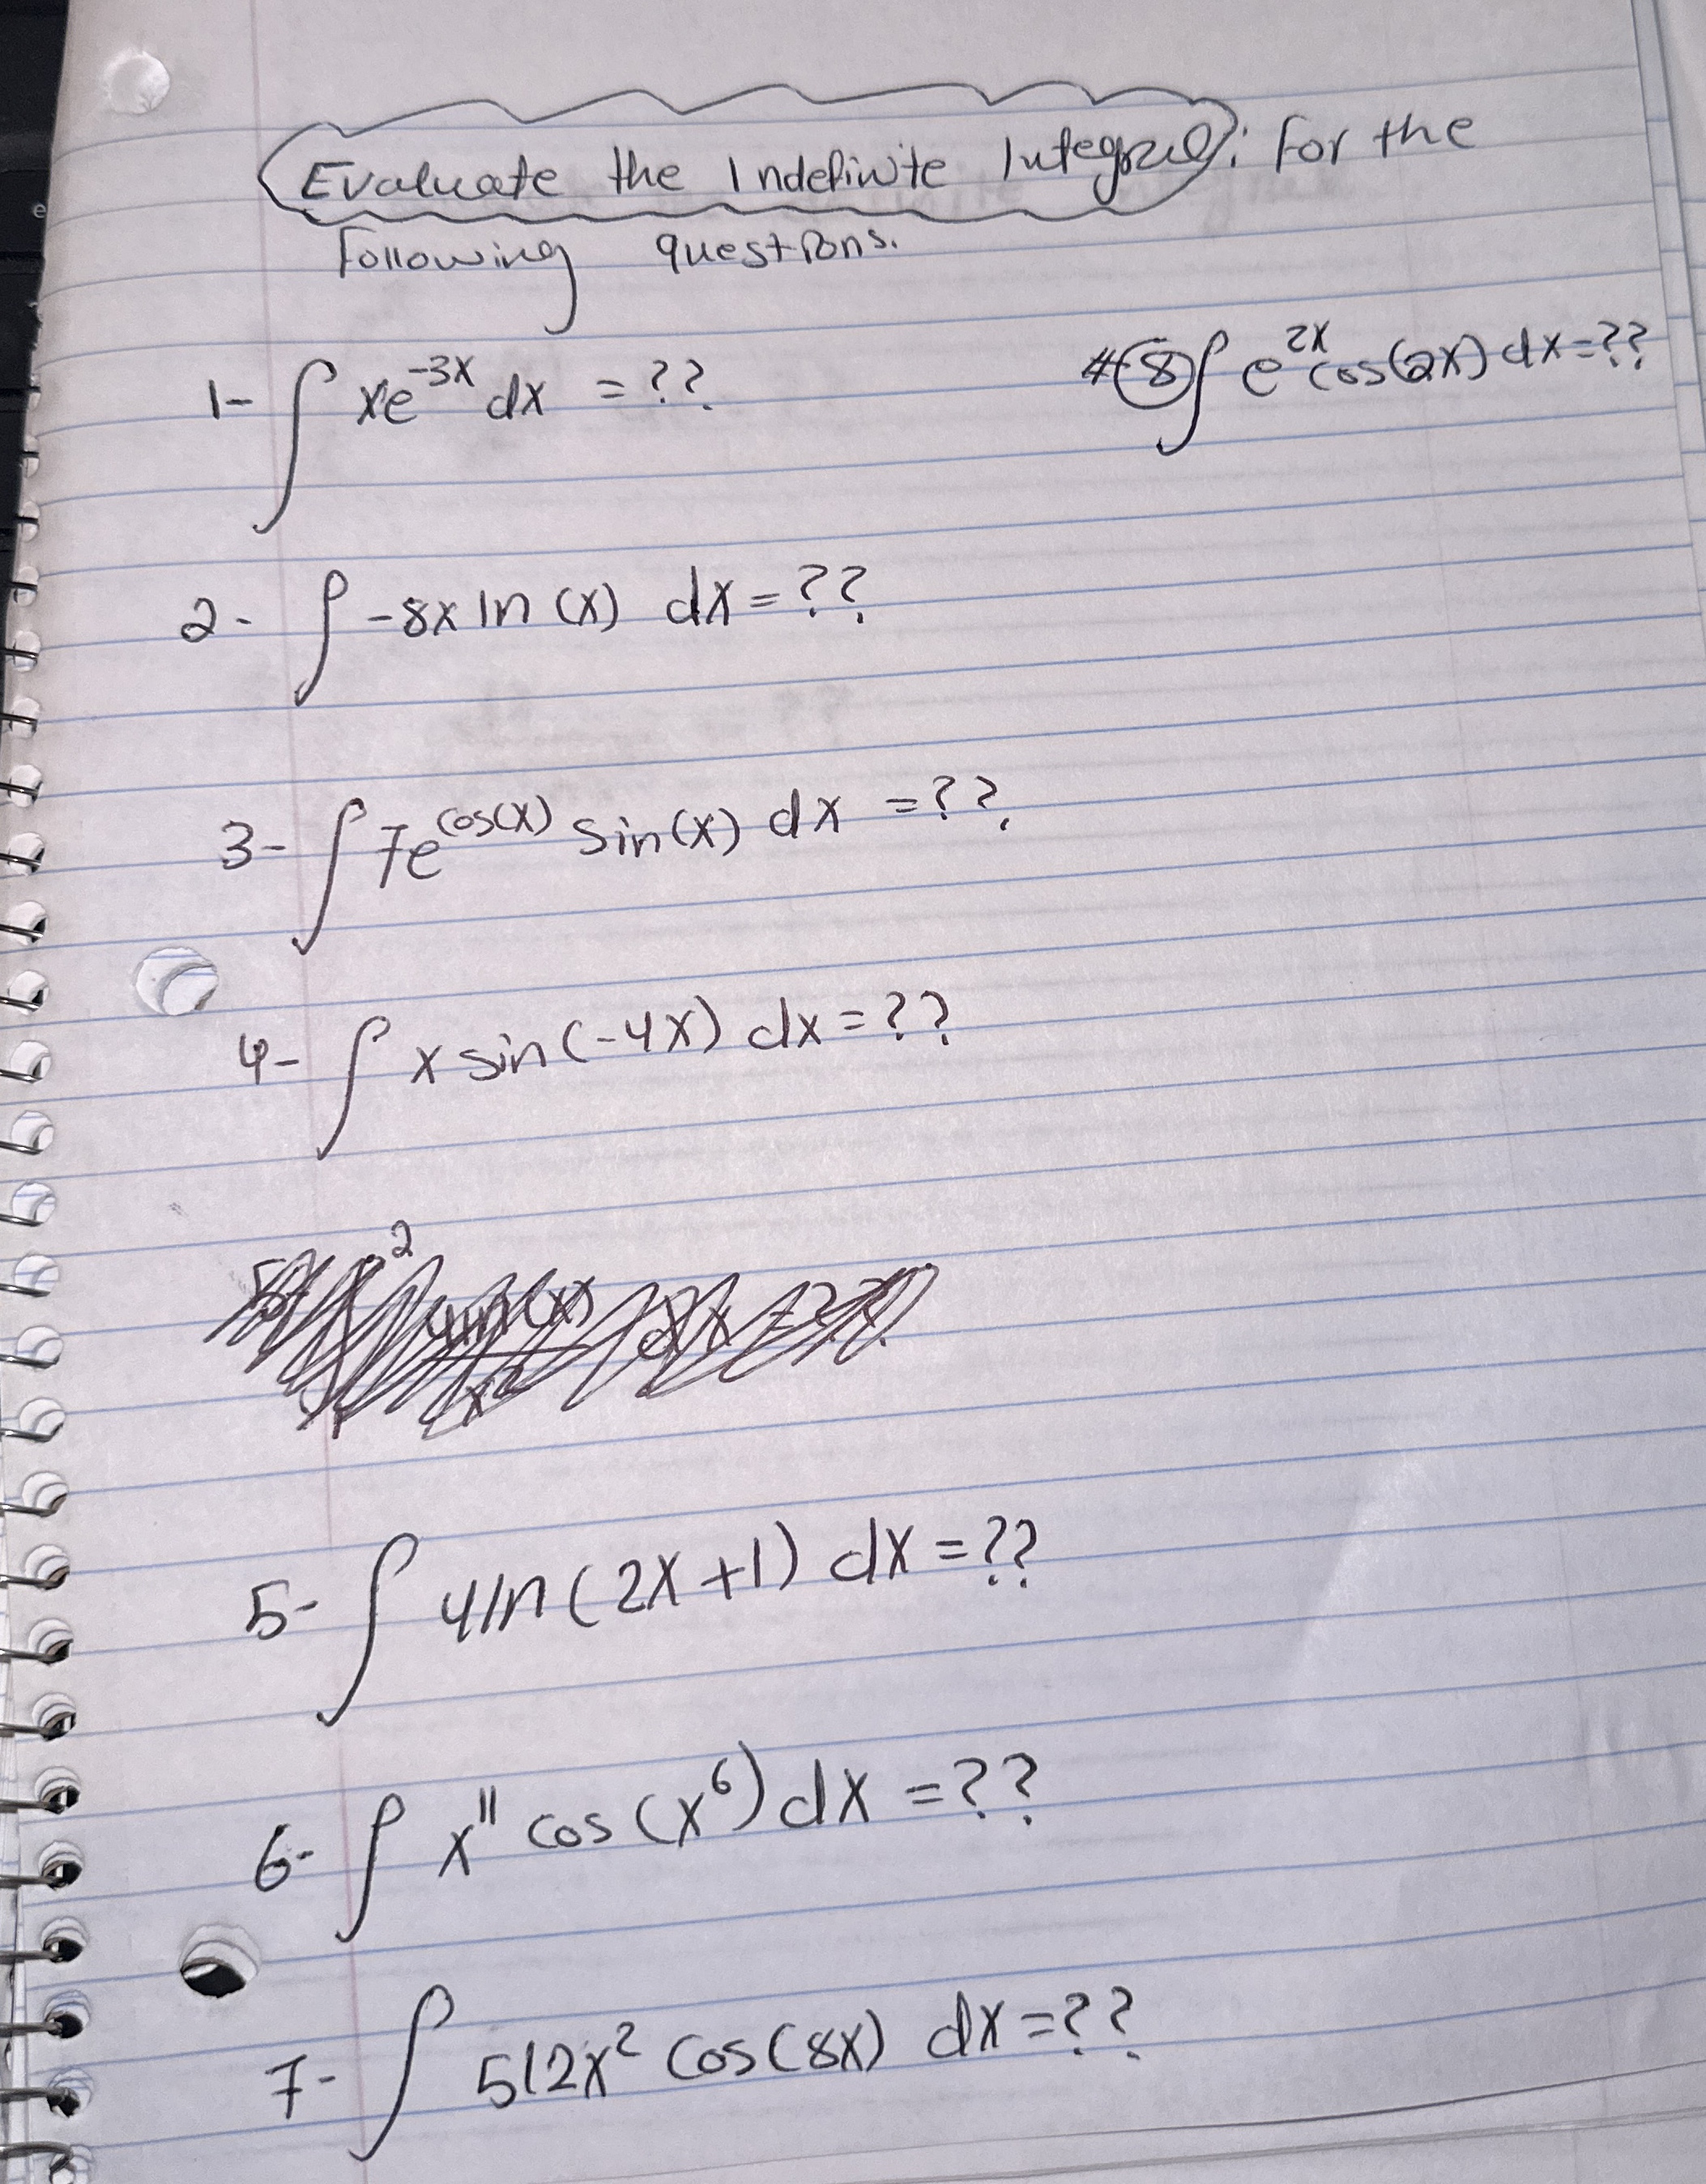 Evaluate the Indefinite Integral: for the
Following questions.
1- ∫ xe^{-3x} dx = ??
#8 ∫ e^{2x} cos(2x) dx = ??
2- ∫ -8x ln(x) dx = ??
3- ∫ 7e^{cos(x)} sin(x) dx = ??
4- ∫ x sin(-4x) dx = ??
5- ∫ 4ln(2x+1) dx = ??
6- ∫ x^{11} cos(x^6) dx = ??
7- ∫ 512x^2 cos(8x) dx = ??